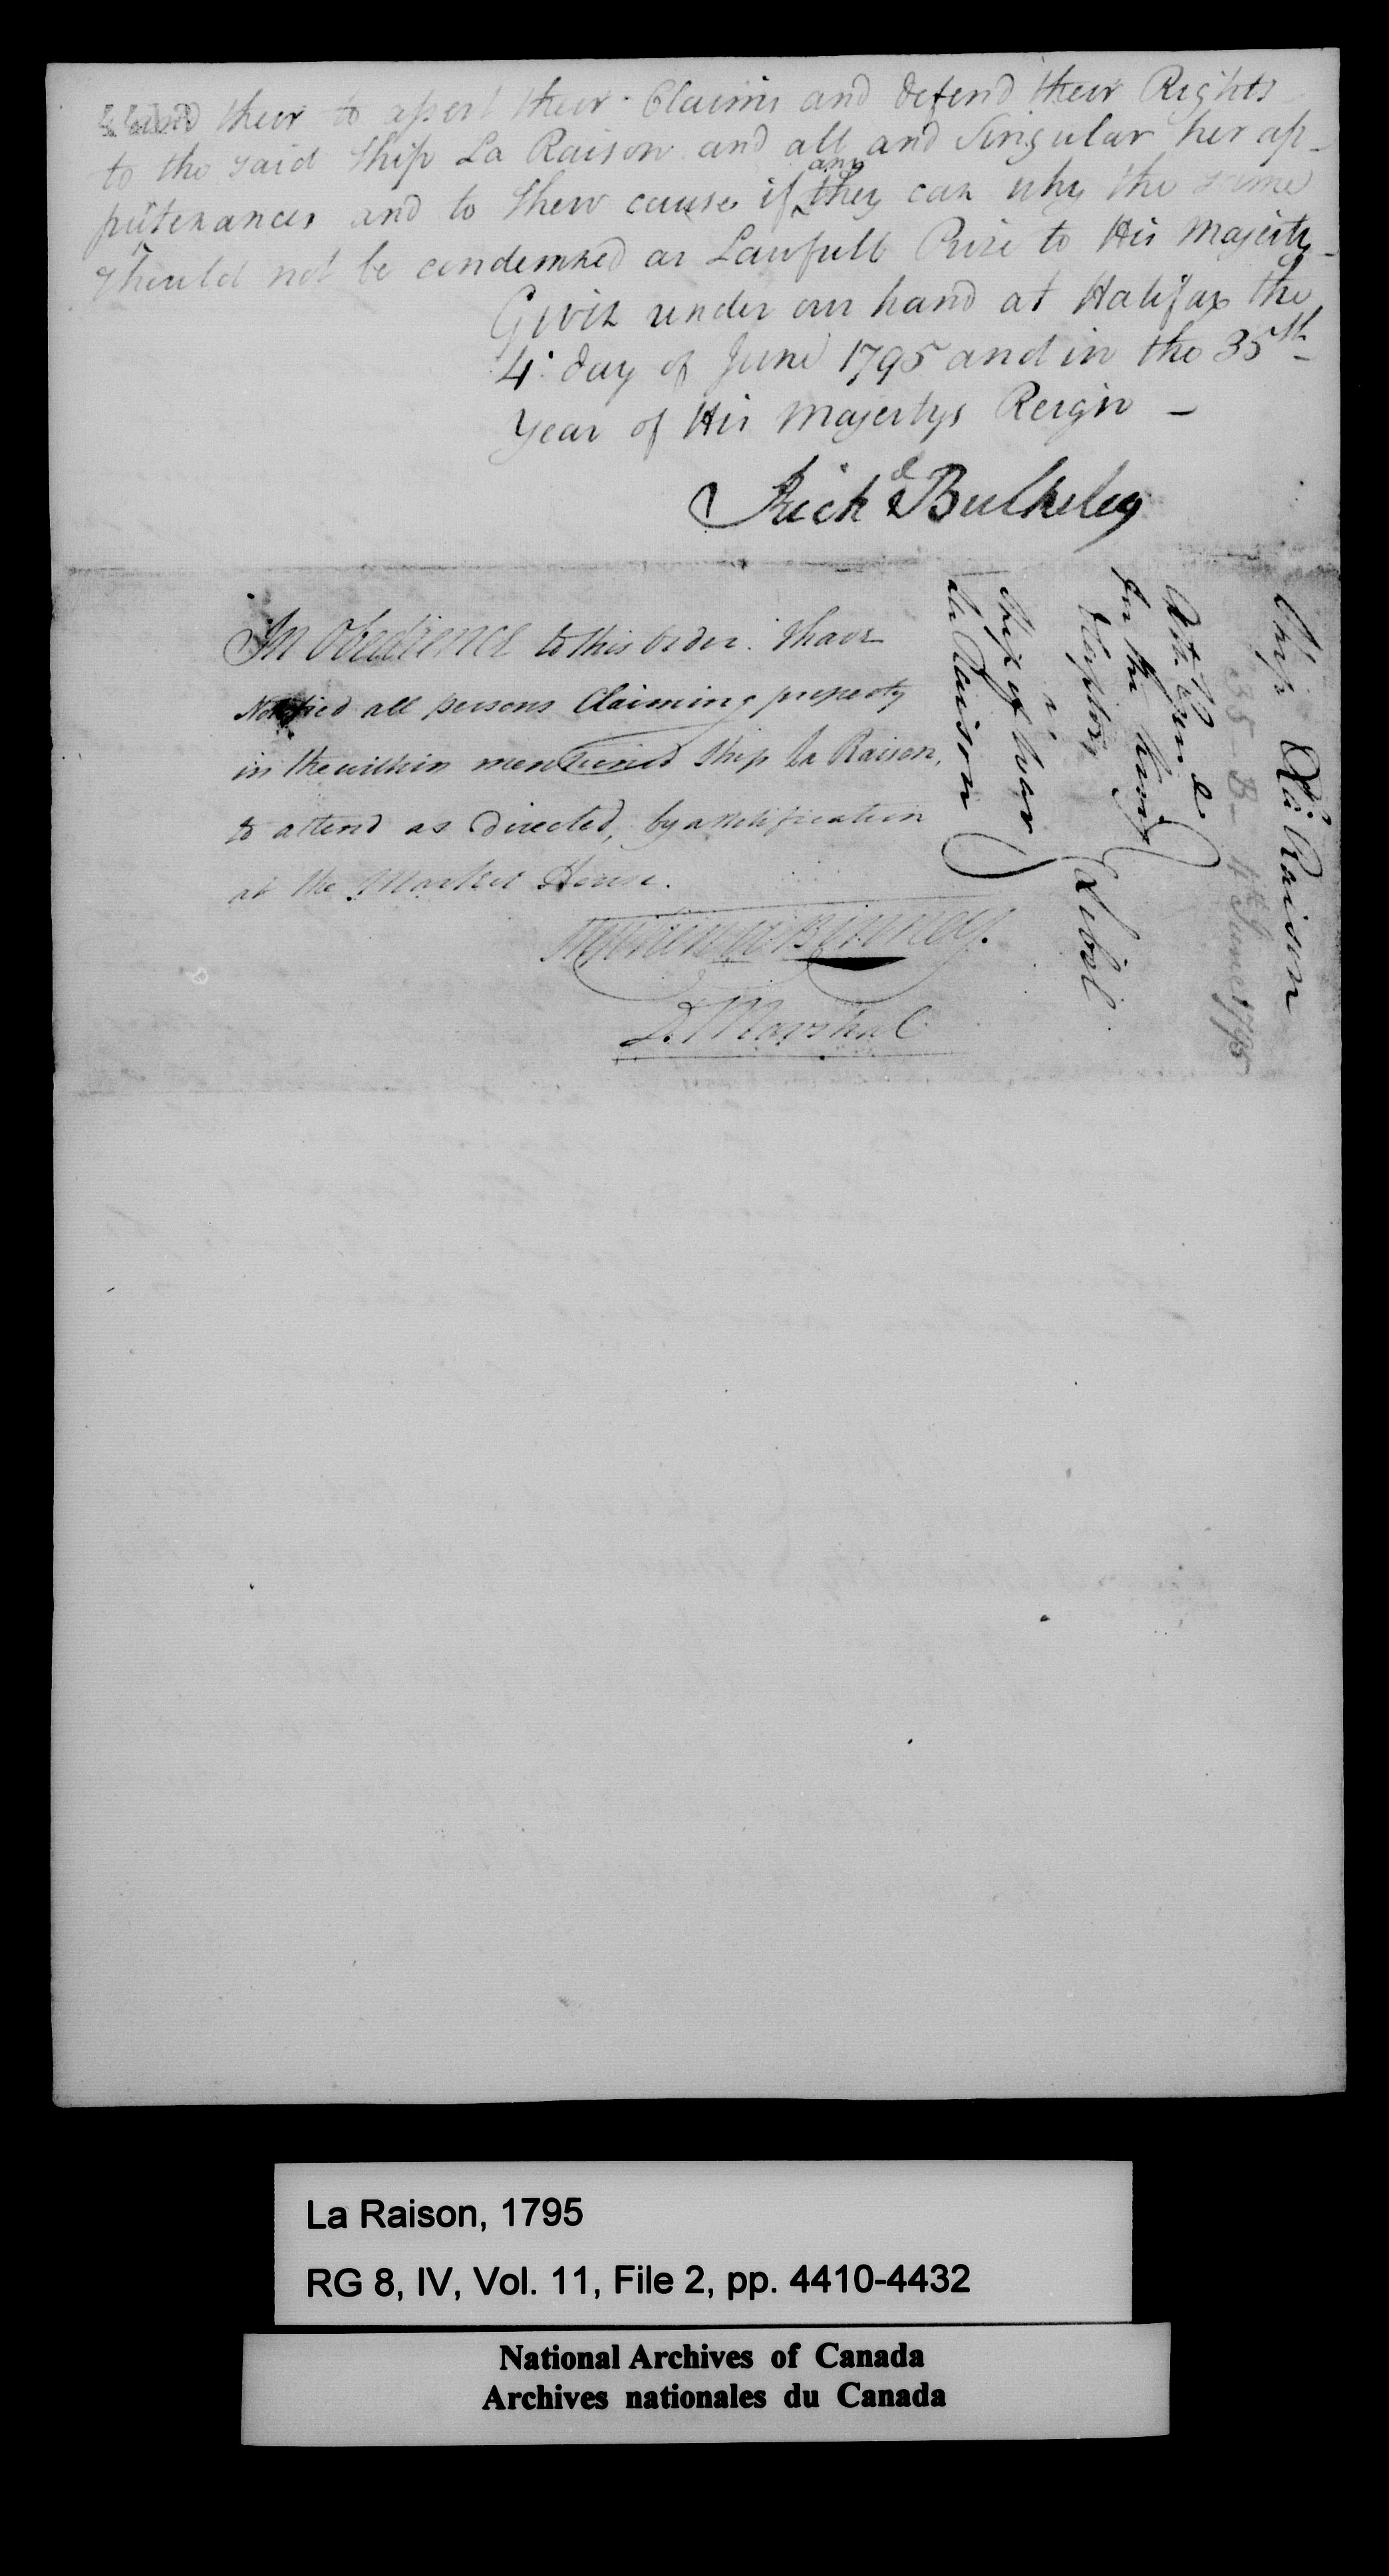 and their to assert their Claims and defend their Rights
to the said Ship La Raison and all and Singular her ap-
purtenances and to Shew cause if any they can why the same
should not be condemned as Lawfull Prize to His Majesty-
Given under our hand at Halifax the
4th day of June 1795 and in the 35th
Year of His Majestys Reign -
Richd Bulkeley
In Obedience to this order. I have
Notified all persons Claiming property
in the within mentioned Ship La Raison,
to attend as Directed, by a Notification
at the Market House.
Binney.
D. Marshal
Ship La Raison
35-B- 4th June 1795
Our Sovereign Lord
the King
Libel
Ship of War
La Raison
La Raison, 1795
RG 8, IV, Vol. 11, File 2, pp. 4410-4432
National Archives of Canada
Archives nationales du Canada